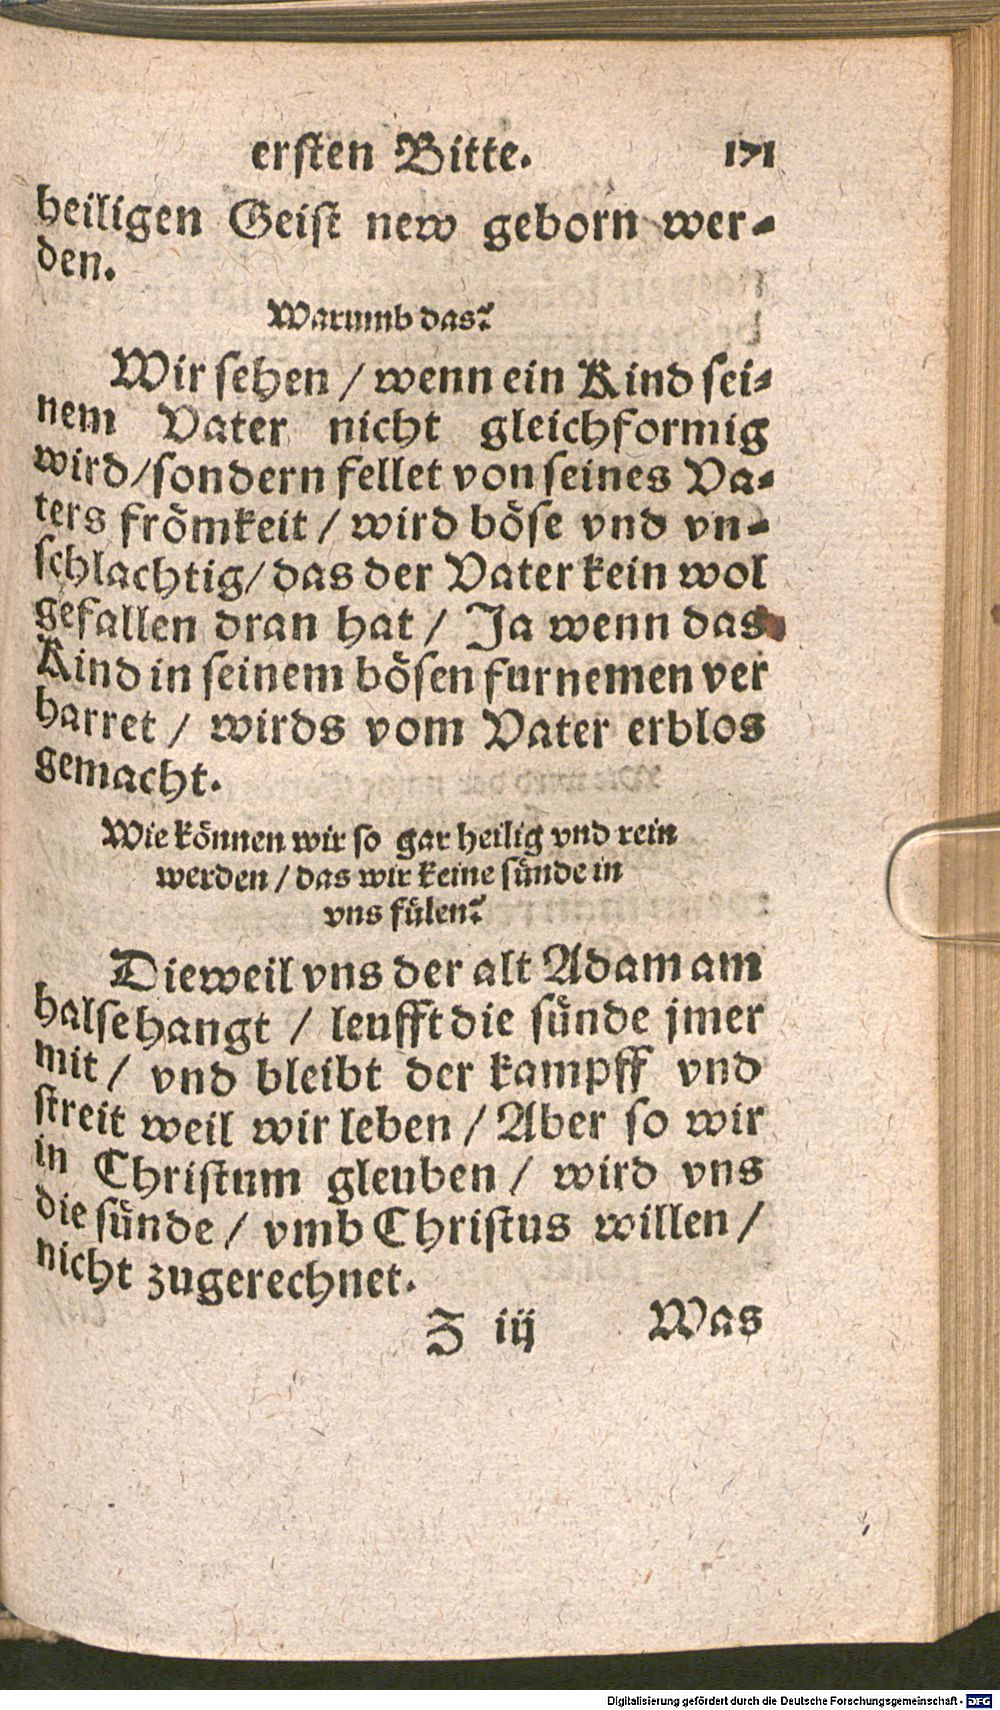 ersten Bitte. 171
heiligen Geist new geborn wer-
den.
Warumb das?
Wir sehen / wenn ein Kind sei-
nem Vater nicht gleichformig
wird/sondern fellet von seines Va-
ters frömkeit / wird böse vnd vn-
schlachtig/ das der Vater kein wol
gefallen dran hat / Ja wenn das
Kind in seinem bösen furnemen ver
harret / wirds vom Vater erblos
gemacht.
Wie können wir so gar heilig vnd rein
werden / das wir keine sünde in
vns fülen?
Dieweil vns der alt Adam am
halse hangt / leufft die sünde jmer
mit / vnd bleibt der kampff vnd
streit weil wir leben / Aber so wir
in Christum gleuben / wird vns
die sünde / vmb Christus willen /
nicht zugerechnet.
Z iij Was
Digitalisierung gefördert durch die Deutsche Forschungsgemeinschaft - DFG